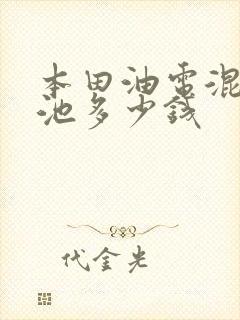 本田油电混
池多少钱
代金光